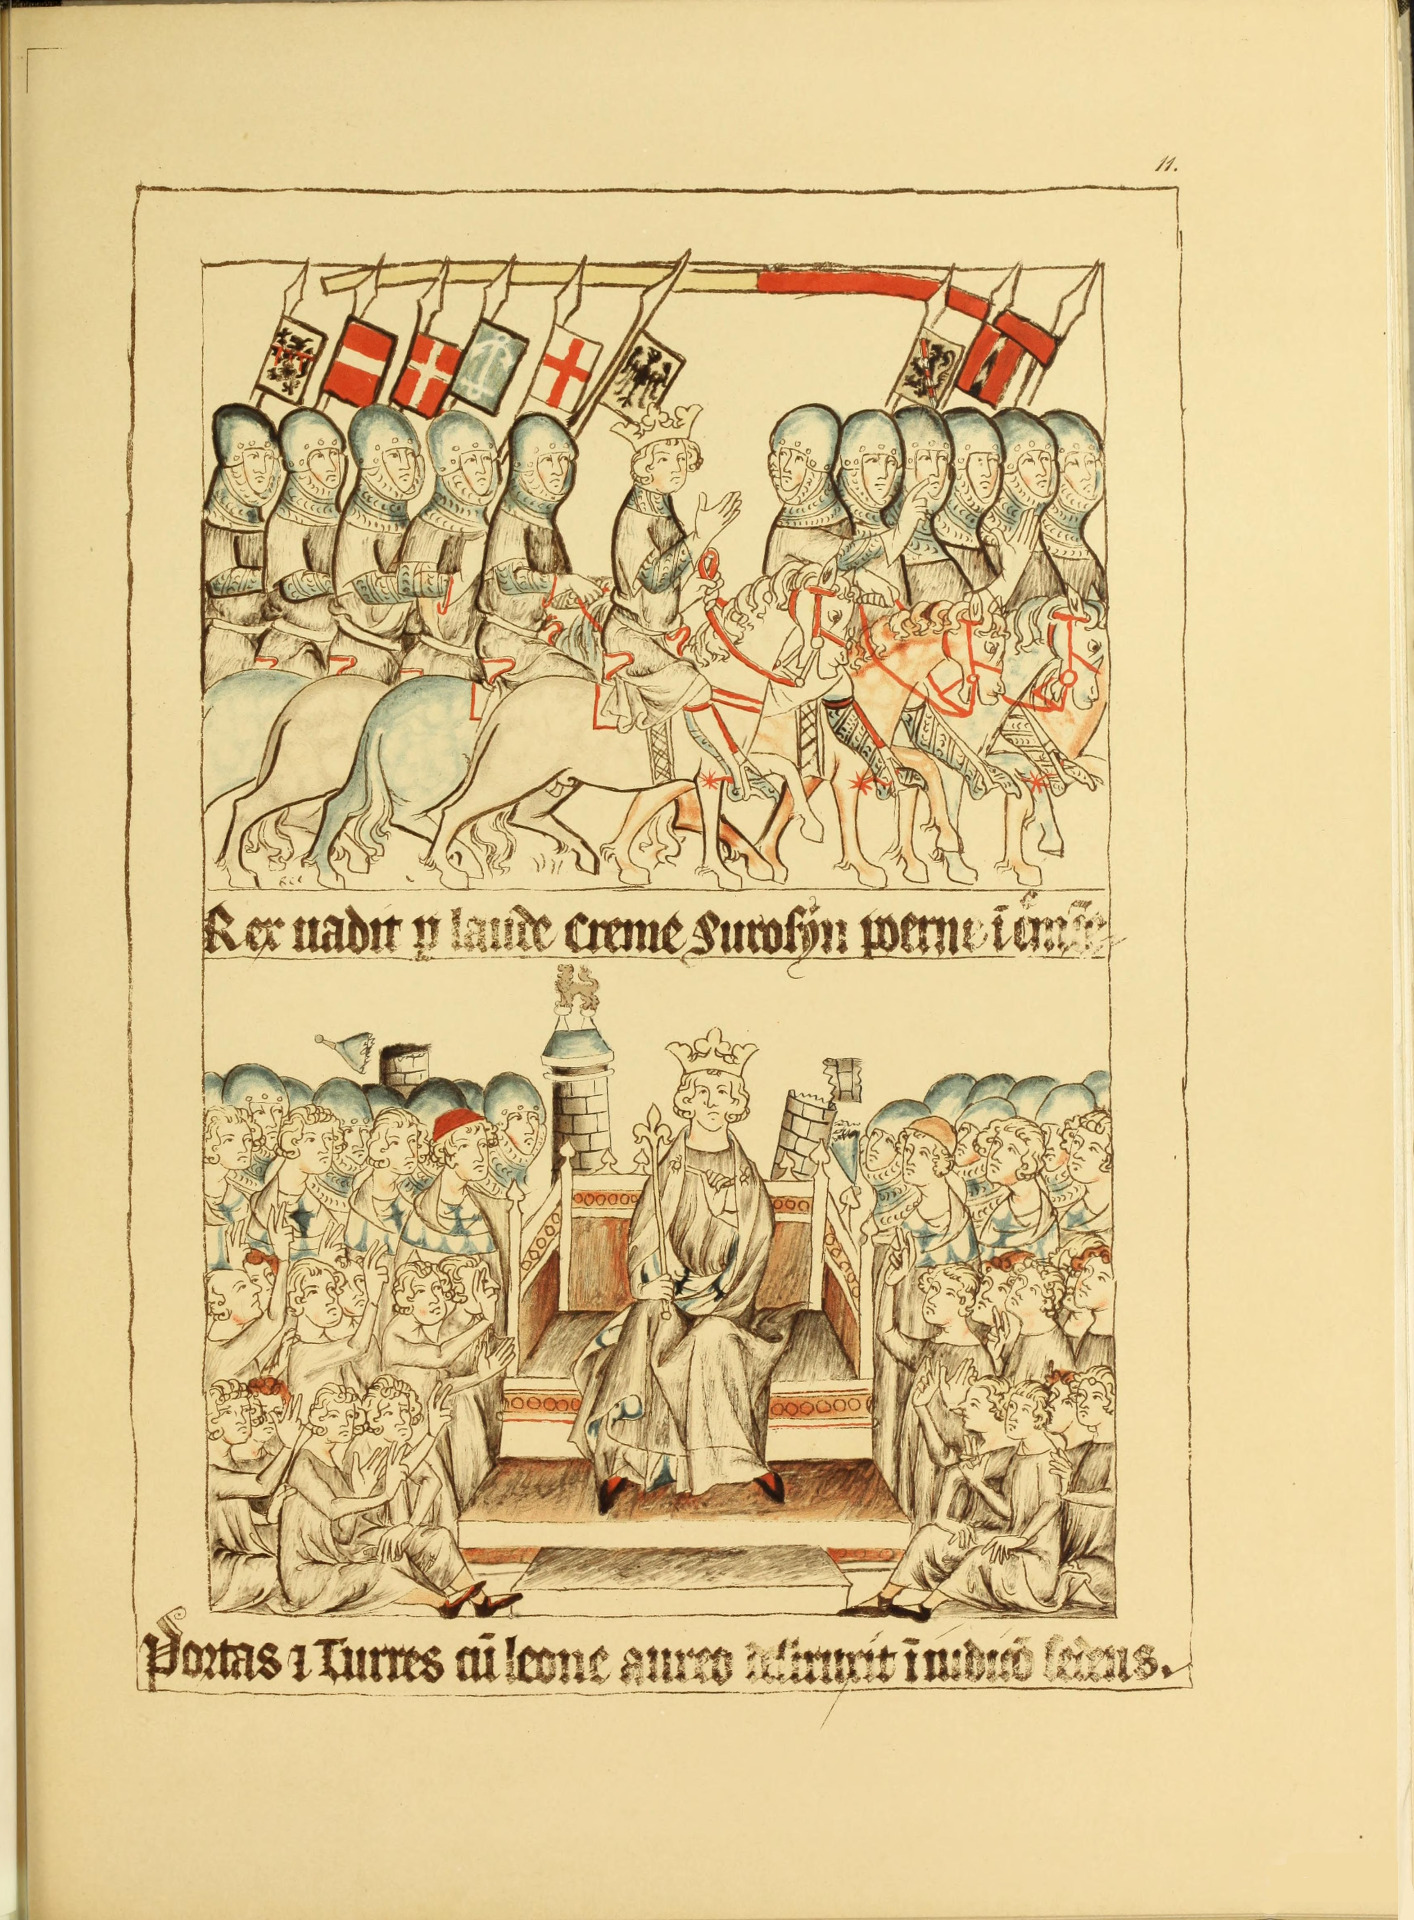 11.
Rex uadit ꝑ laude Creme Surosỹn poerne ī
Portas ⁊ Turres cū leone aureo destruxit ī iudicō sedens.